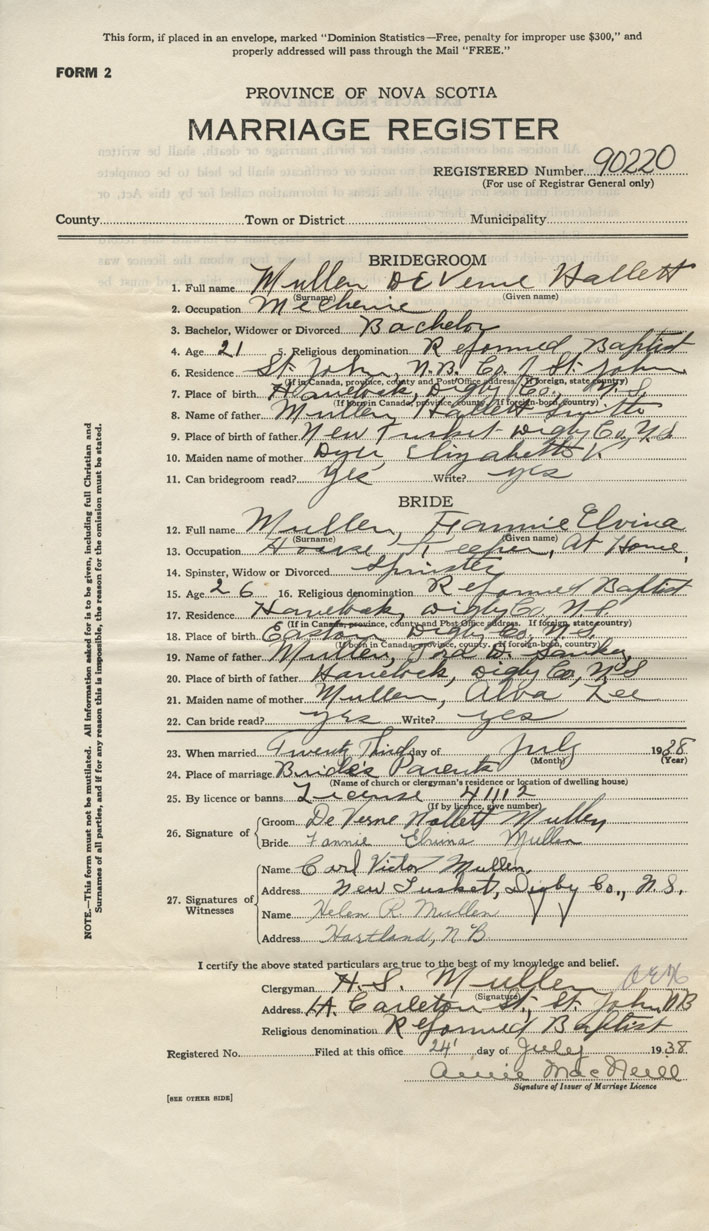 This form, if placed in an envelope, marked "Dominion Statistics—Free, penalty for improper use $300," and
properly addressed will pass through the Mail "FREE."
FORM 2
PROVINCE OF NOVA SCOTIA
MARRIAGE REGISTER
REGISTERED Number 90220
(For use of Registrar General only)
County Town or District Municipality
BRIDEGROOM
1. Full name Mullen DeVerne Hallett
(Surname) (Given name)
2. Occupation Mechenic
3. Bachelor, Widower or Divorced Bachelor
4. Age 21 5. Religious denomination Reformed Baptist
6. Residence St. John, N.B. Co. of St. John
(If in Canada, province, county and Post Office address. If foreign, state country)
7. Place of birth Havelock, Digby Co., N.S.
(If born in Canada, province, county. If foreign-born, country)
8. Name of father Mullen, Hallett Smith
9. Place of birth of father New Tusket Digby Co., N.S.
10. Maiden name of mother Dyer, Elizabeth K
11. Can bridegroom read? Yes Write? yes
BRIDE
12. Full name Mullen, Fannie Elvina
(Surname) (Given name)
13. Occupation House Keeper, At Home,
14. Spinster, Widow or Divorced Spinster
15. Age 26 16. Religious denomination Reformed Baptist
17. Residence Havelock, Digby Co., N.S.
(If in Canada, province, county and Post Office address. If foreign, state country)
18. Place of birth Easton Digby Co., N.S.
(If born in Canada, province, county. If foreign-born, country)
19. Name of father Mullen, Ira D. Sankey,
20. Place of birth of father Havelock, Digby Co., N.S
21. Maiden name of mother Mullen, Alva Lee
22. Can bride read? yes Write? yes
23. When married Twenty Third day of July 1938
(Month) (Year)
24. Place of marriage Bride's Parents
(Name of church or clergyman's residence or location of dwelling house)
25. By licence or banns License 41112
(If by licence, give number)
26. Signature of
Groom DeVerne Hallett Mullen
Bride Fannie Elvina Mullen
27. Signatures of Witnesses
Name Carl Victor Mullen,
Address New Tusket, Digby Co., N.S.
Name Helen R. Mullen
Address Hartland, N B
I certify the above stated particulars are true to the best of my knowledge and belief.
Clergyman H. S. Mullen
(Signature)
Address 1A Carleton St., St. John NB
Religious denomination Reformed Baptist
Registered No. Filed at this office 24' day of July 1938
Annie MacNeill
Signature of Issuer of Marriage Licence
[SEE OTHER SIDE]
NOTE.—This form must not be mutilated. All information asked for is to be given, including full Christian and
Surnames of all parties, and if for any reason this is impossible, the reason for the omission must be stated.